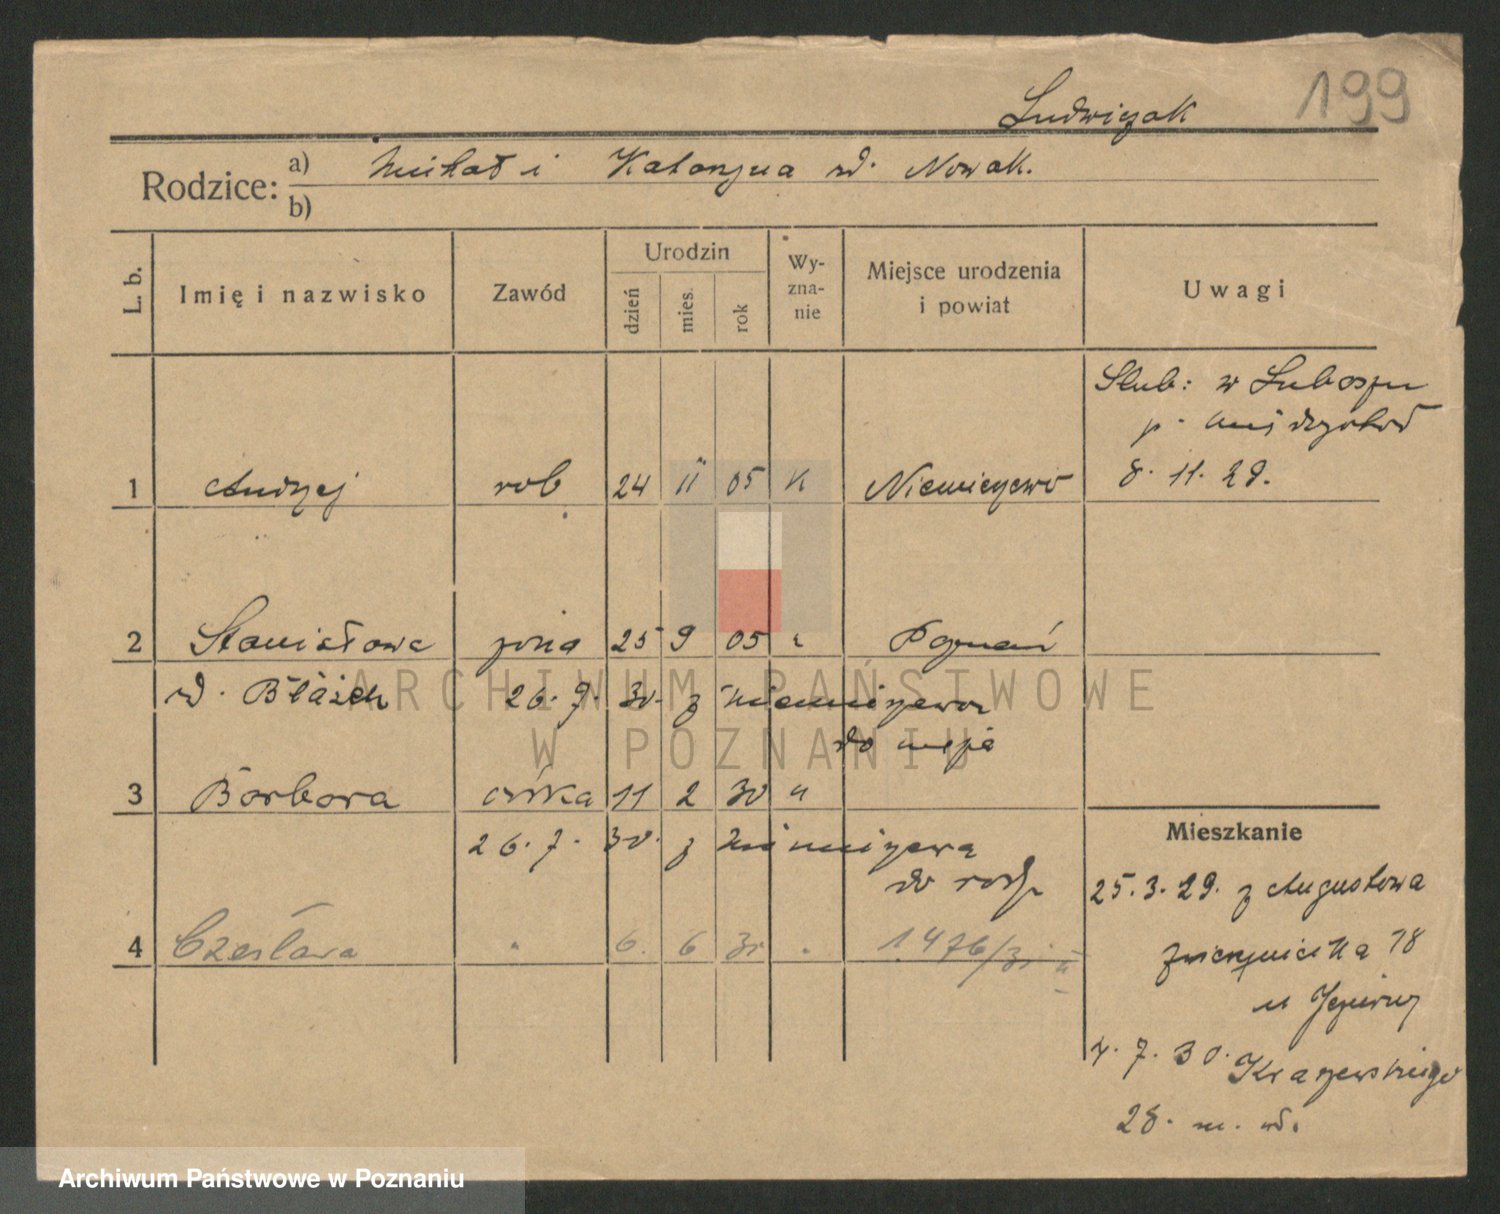 199
Ludwiczak
Rodzice: a) Michał i Katarzyna ur. Nowak.
b)
L. b.
Imię i nazwisko
Zawód
Urodzin
dzień
mies.
rok
Wy-
zna-
nie
Miejsce urodzenia
i powiat
Uwagi
Slub: w Luboszu
p.
8. 11. 29.
1 Andrzej rob 24 II 05 K Niemieczewo
2 Stanisława żona 25 9 05 " Poznań
ur. Błażek 26. 7. 30. z
do męża
3 Barbara córka 11 2 30 "
26. 7. 30. z
do rodz.
4 Czesława " 6. 6 31 " 1476/31
Mieszkanie
25. 3. 29. z Augustowa
18
u
4. 7. 30. Kraszewskiego
28. m.
ARCHIWUM PAŃSTWOWE
W POZNANIU
Archiwum Państwowe w Poznaniu